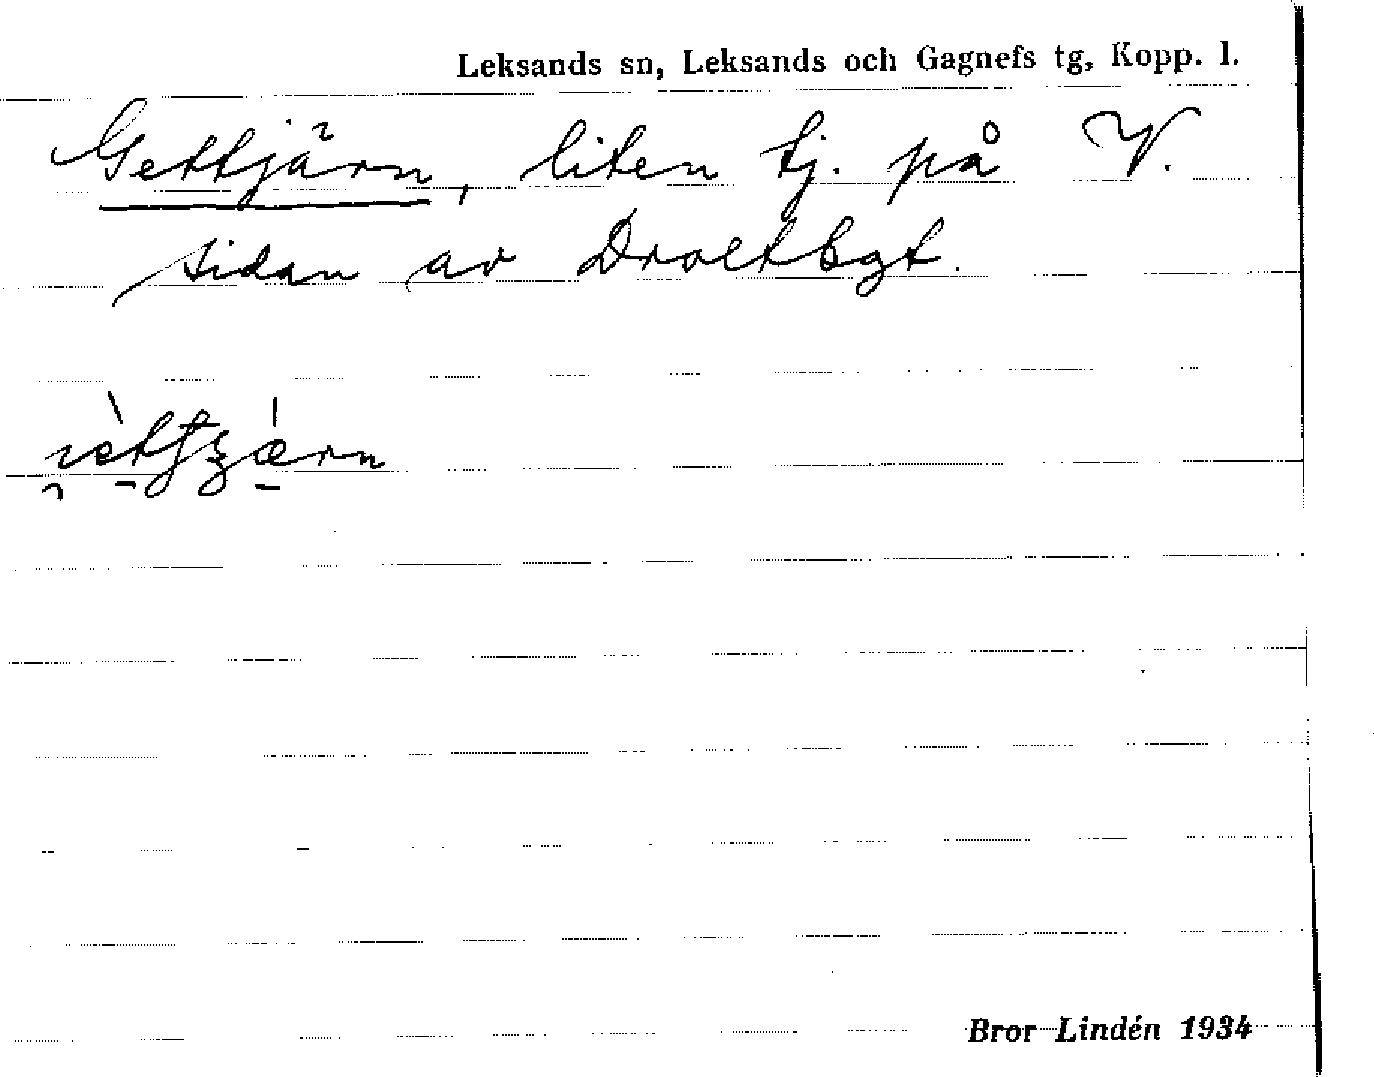 Leksands sn, Leksands och Gagnefs tg, Kopp. l.
Gettjärn, liten tj. på V.
sidan av
Bror Lindén 1934